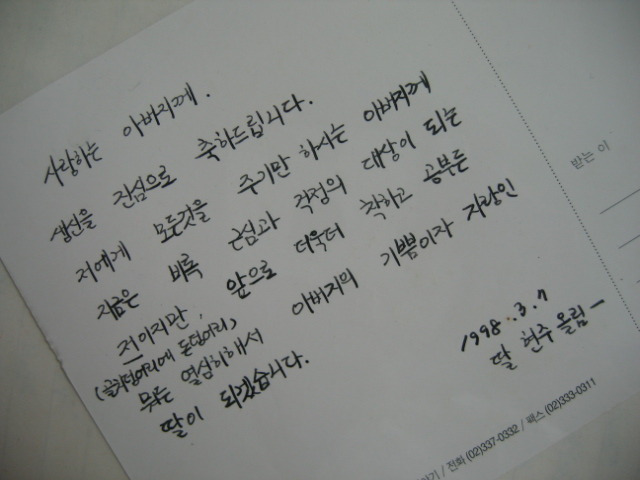 사랑하는 아버지께.
생신을 진심으로 축하드립니다.
저에게 모든것을 주기만 하시는 아버지께
지금은 비록 근심과 걱정의 대상이 되는
저이지만, 앞으로 더욱더 착하고 공부든
(골치덩어리에 돈덩어리)
뭐든 열심히해서 아버지의 기쁨이자 자랑인
딸이 되겠습니다.
1998.3.7
딸 현주 올림-
받는 이
/ 전화 (02)337-0332 / 팩스 (02)333-0311